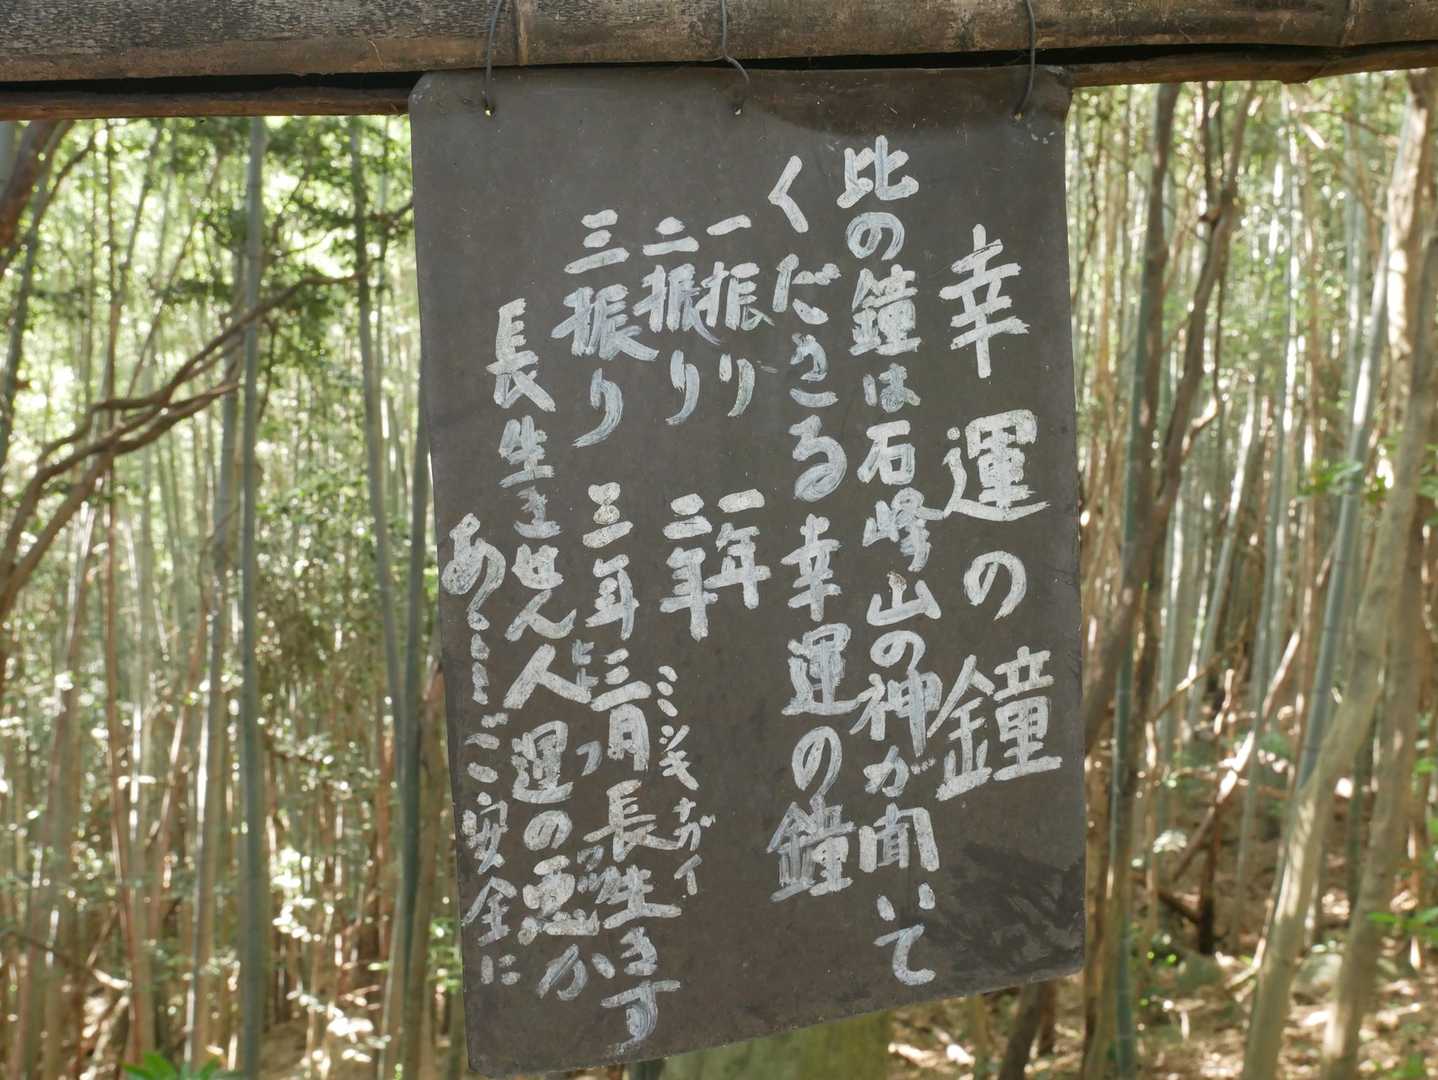 幸運の鐘
比の鐘は石峰山の神が聞いて
くださる幸運の鐘
一振り 一年
二振り 二年
三振り 三年三月長生きす
ミツキナガイ
長生きせん人の悪か
あくーーご安全に